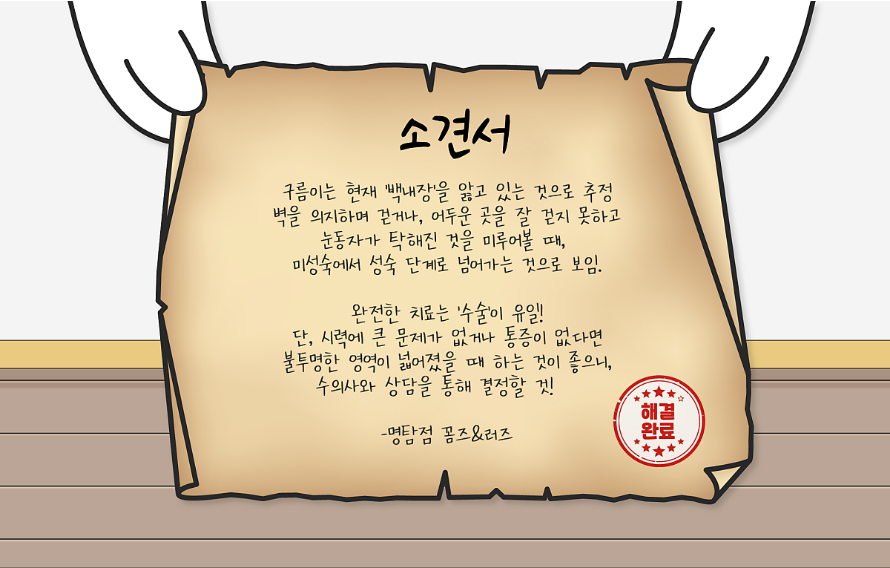 소견서
구름이는 현재 '백내장'을 앓고 있는 것으로 추정
벽을 의지하며 걷거나, 어두운 곳을 잘 걷지 못하고
눈동자가 탁해진 것을 미루어볼 때,
미성숙에서 성숙 단계로 넘어가는 것으로 보임.
완전한 치료는 '수술'이 유일!
단, 시력에 큰 문제가 없거나 통증이 없다면
불투명한 영역이 넓어졌을 때 하는 것이 좋으니,
수의사와 상담을 통해 결정할 것!
-명탐점 꼼즈&러즈
해결
완료